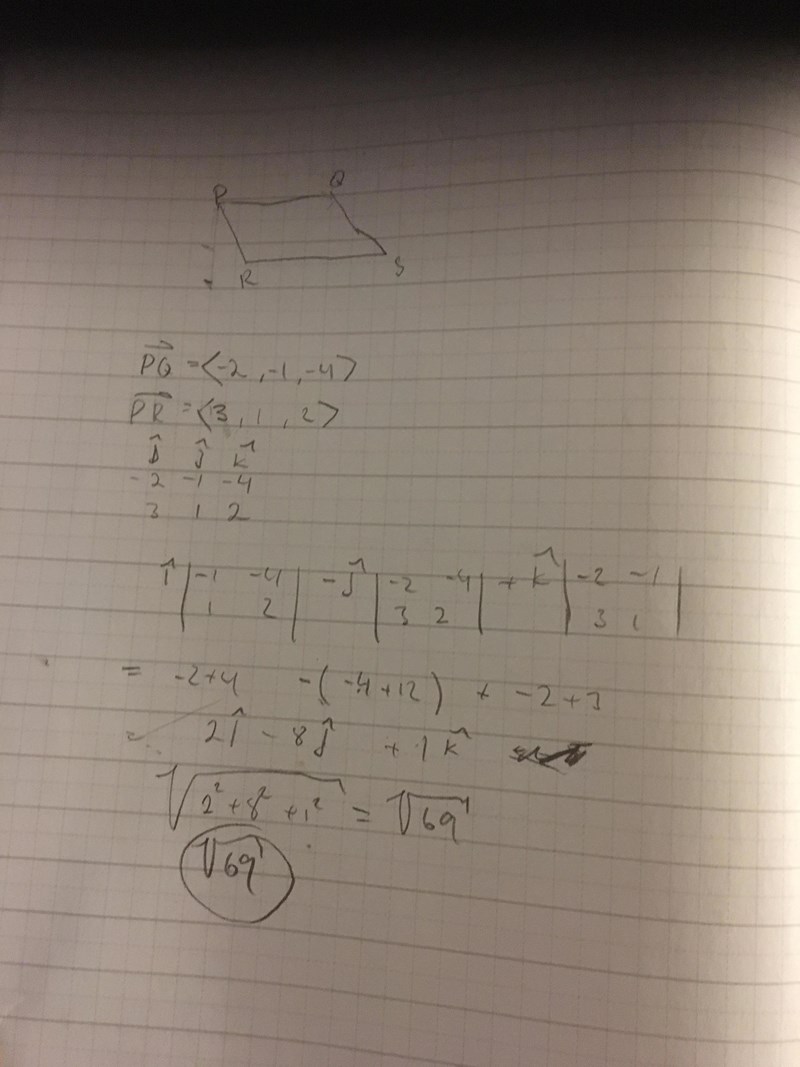 P Q
R S
PQ→ = <-2, -1, -4>
PR→ = <3, 1, 2>
î ĵ k̂
-2 -1 -4
3 1 2
î | -1 -4 | - ĵ | -2 -4 | + k̂ | -2 -1 |
1 2 3 2 3 1
= -2+4 -(-4+12) + -2+3
= 2î - 8ĵ + 1k̂
√(2² + 8² + 1²) = √69
√69